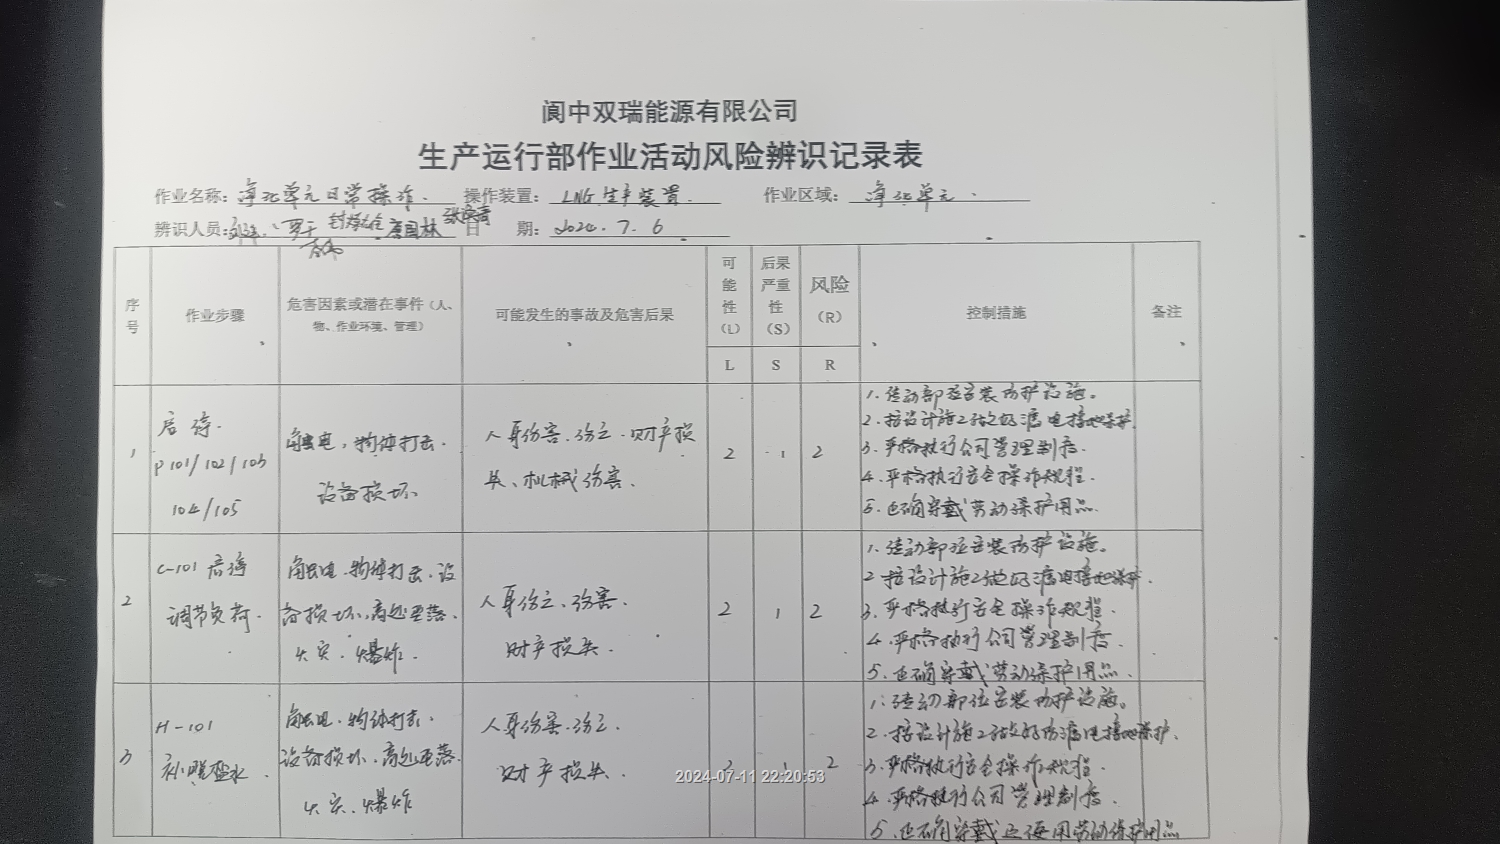 阆中双瑞能源有限公司
生产运行部作业活动风险辨识记录表
作业名称: 净化单元日常操作. 操作装置: LNG生产装置. 作业区域: 净化单元.
辨识人员: 唐国林 日 期: 2024.7.6
序号 作业步骤 危害因素或潜在事件(人、物、作业环境、管理) 可能发生的事故及危害后果 可能性(L) 后果严重性(S) 风险(R) 控制措施 备注
L S R
1 启停.
P101/102/103
104/105
触电, 物体打击.
设备损坏
人身伤害、伤亡、财产损
失、机械伤害.
2 1 2
1. 传动部位安装防护设施。
2. 按设计施工做好漏电接地保护.
3. 严格执行公司管理制度.
4. 严格执行安全操作规程.
5. 正确穿戴劳动保护用品.
2 C-101启停
调节负荷.
触电、物体打击、设
备损坏、高处坠落、
火灾、爆炸.
人身伤亡、伤害.
财产损失.
2 1 2
1. 传动部位安装防护设施。
2 按设计施工做好漏电接地保护.
3. 严格执行安全操作规程.
4. 严格执行公司管理制度.
5. 正确穿戴劳动保护用品.
3 H-101
补脱盐水.
触电、物体打击.
设备损坏、高处坠落
火灾、爆炸
人身伤害、伤亡.
财产损失.
2 1 2
1. 传动部位安装防护设施。
2. 按设计施工做好防漏电接地保护.
3. 严格执行安全操作规程.
4. 严格执行公司管理制度.
5. 正确穿戴正使用劳动保护用品
2024-07-11 22:20:53